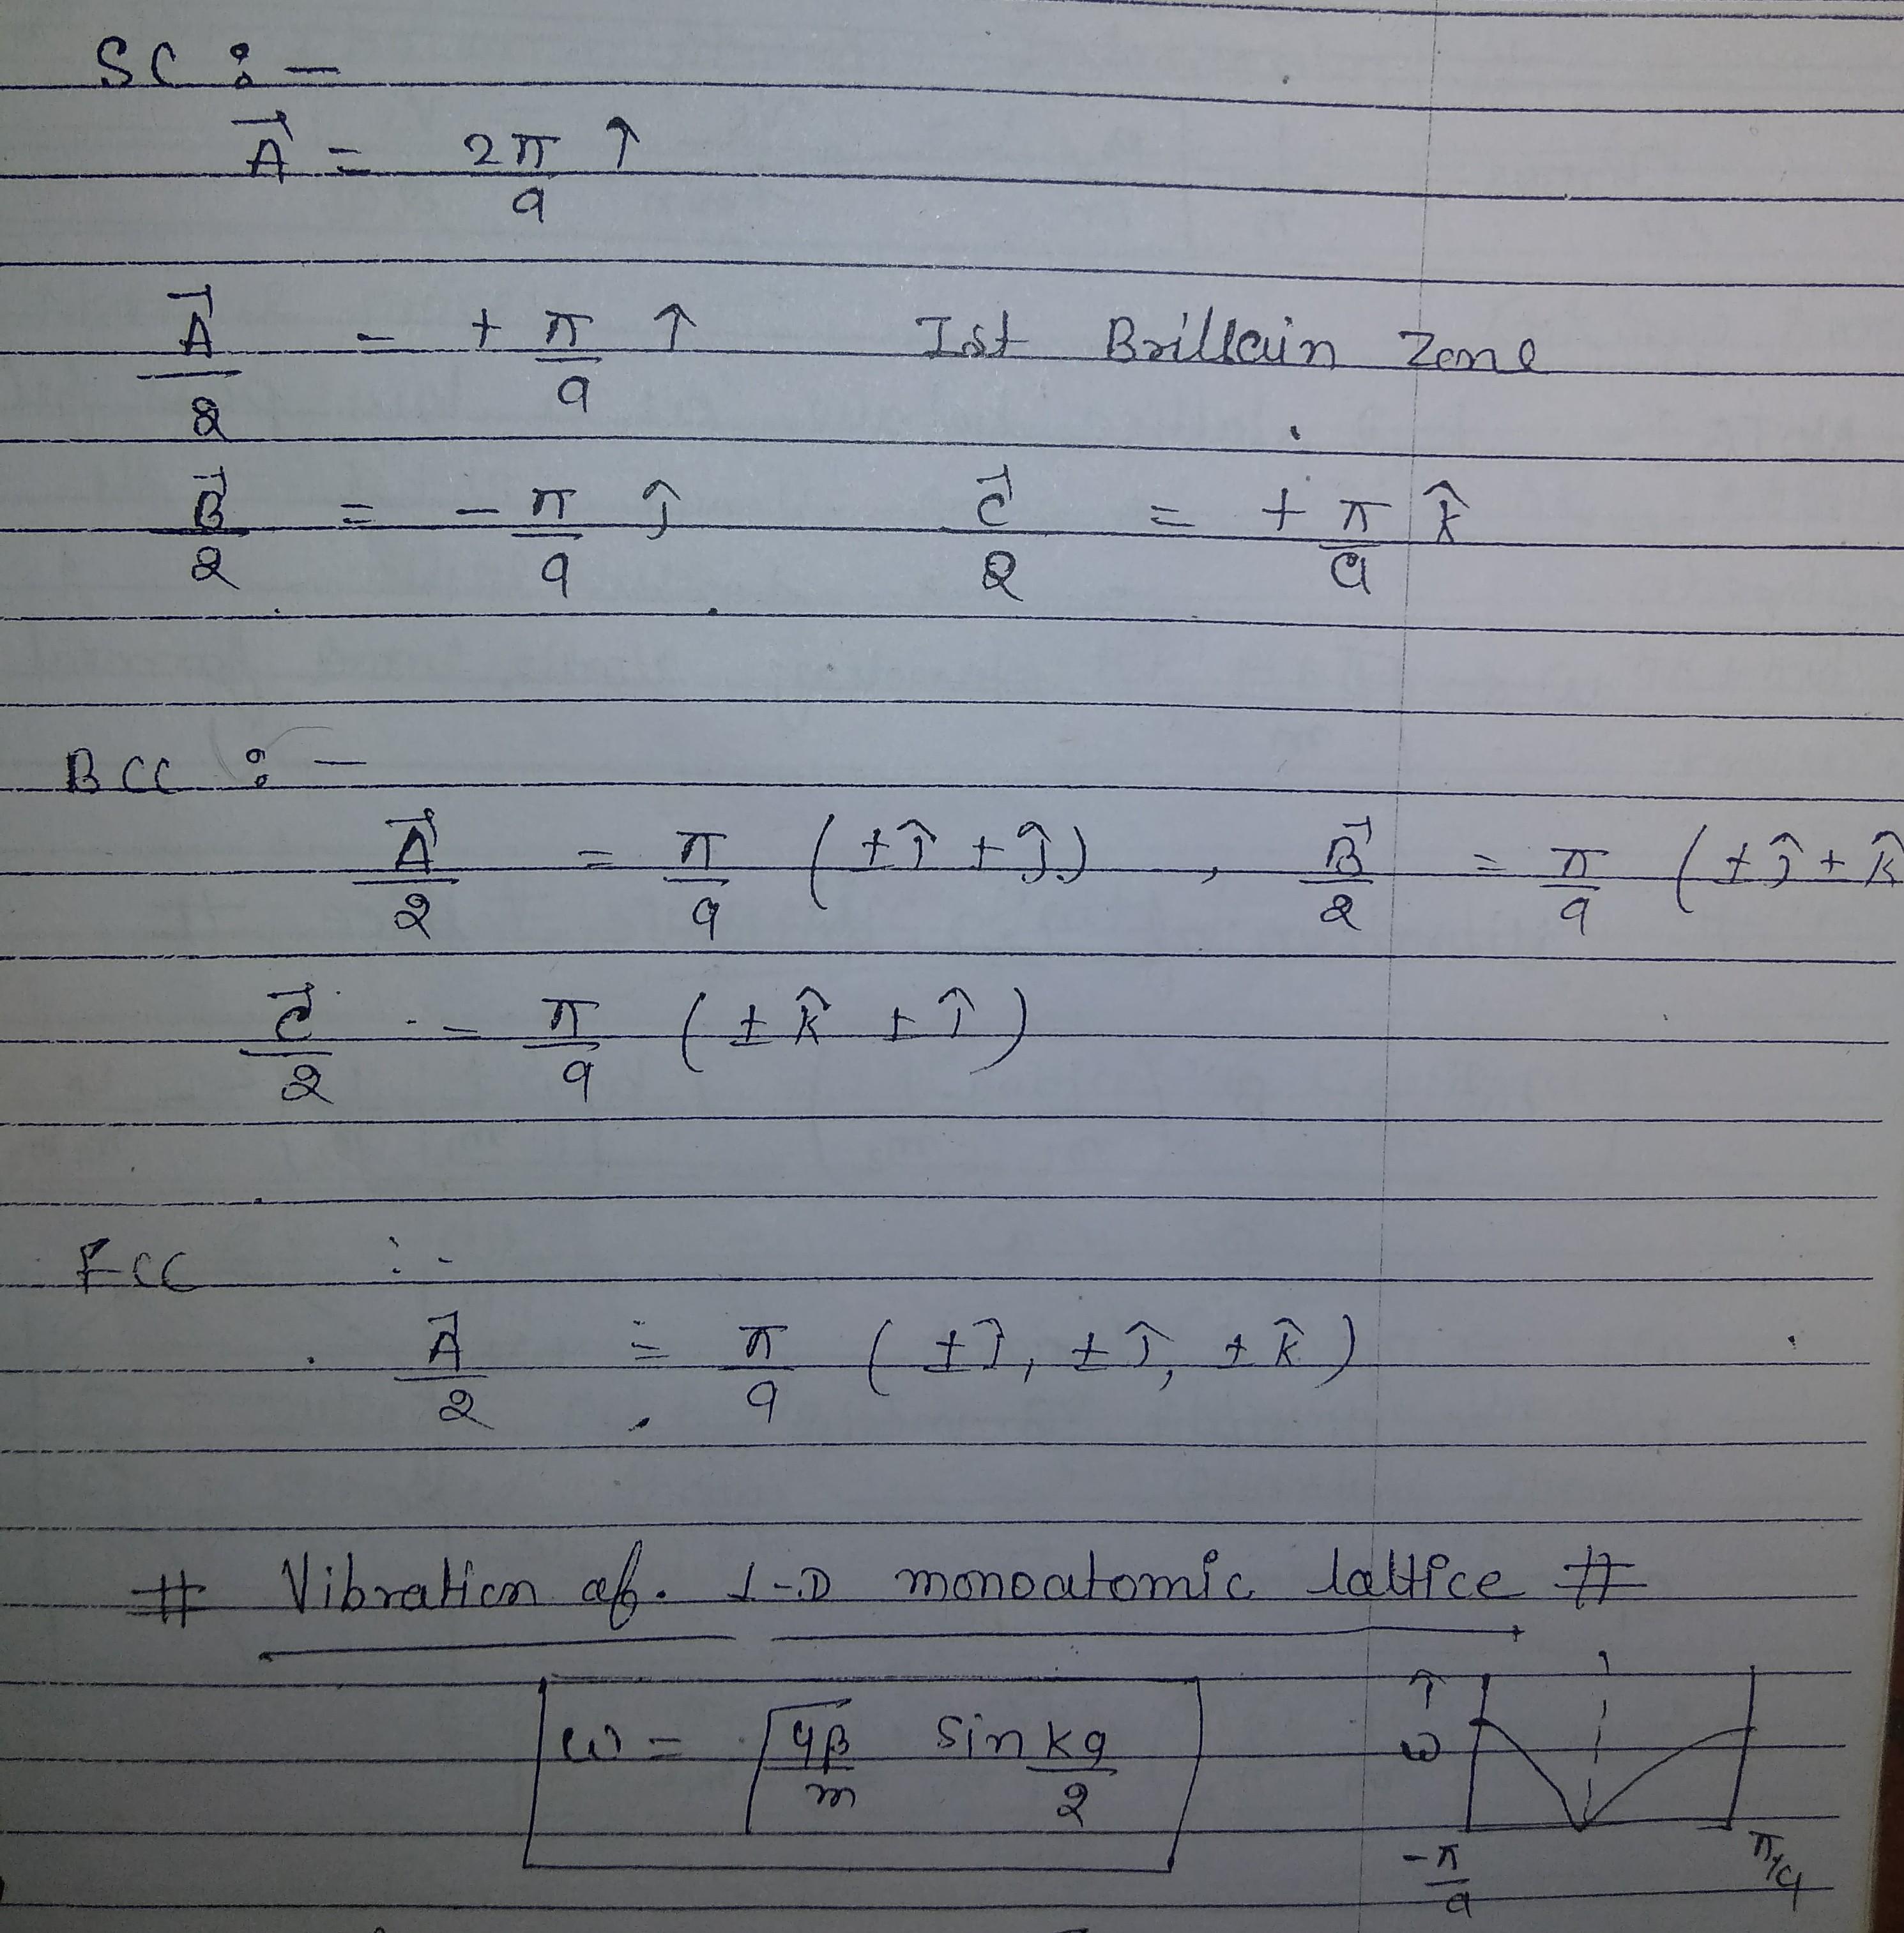 SC :-
A⃗ = 2π/a î
A⃗/2 = + π/a î Ist Brillain Zone
B⃗/2 = - π/a ĵ C⃗/2 = + π/a k̂
BCC :-
A⃗/2 = π/a (±î + ĵ) , B⃗/2 = π/a (±ĵ + k̂
C⃗/2 = π/a (±k̂ ± î)
FCC :-
A⃗/2 = π/a (±î, ±ĵ, ±k̂)
# Vibration of. 1-D monoatomic lattice #
ω = √4β/m sin ka/2
↑ ω
-π/a π/a